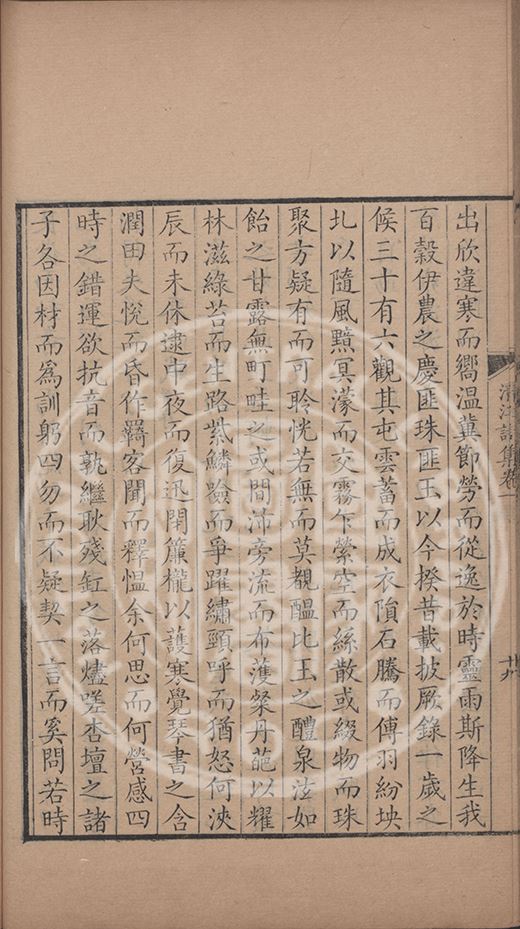 清江詩集卷一
出欣違寒而嚮温冀節勞而從逸於時靈雨斯降生我
百穀伊農之慶匪珠匪玉以今揆昔載披厥錄一歲之
候三十有六觀其屯雲蓄而成衣隕石騰而傳羽紛坱
圠以隨風黯冥濛而交霧乍縈空而絲散或綴物而珠
聚方疑有而可聆恍若無而莫覩醖比玉之醴泉泫如
飴之甘露無町畦之或間沛旁流而布濩粲丹葩以耀
林滋綠苔而生路紫鱗噞而爭躍繡頸呼而猶怒何浹
辰而未休逮中夜而復迅閉簾櫳以護寒覺琴書之含
潤田夫悅而昏作羇客聞而釋愠余何思而何營感四
時之錯運欲抗音而孰繼耿殘缸之落燼嗟杏壇之諸
子各因材而爲訓躬四勿而不疑契一言而奚問若時